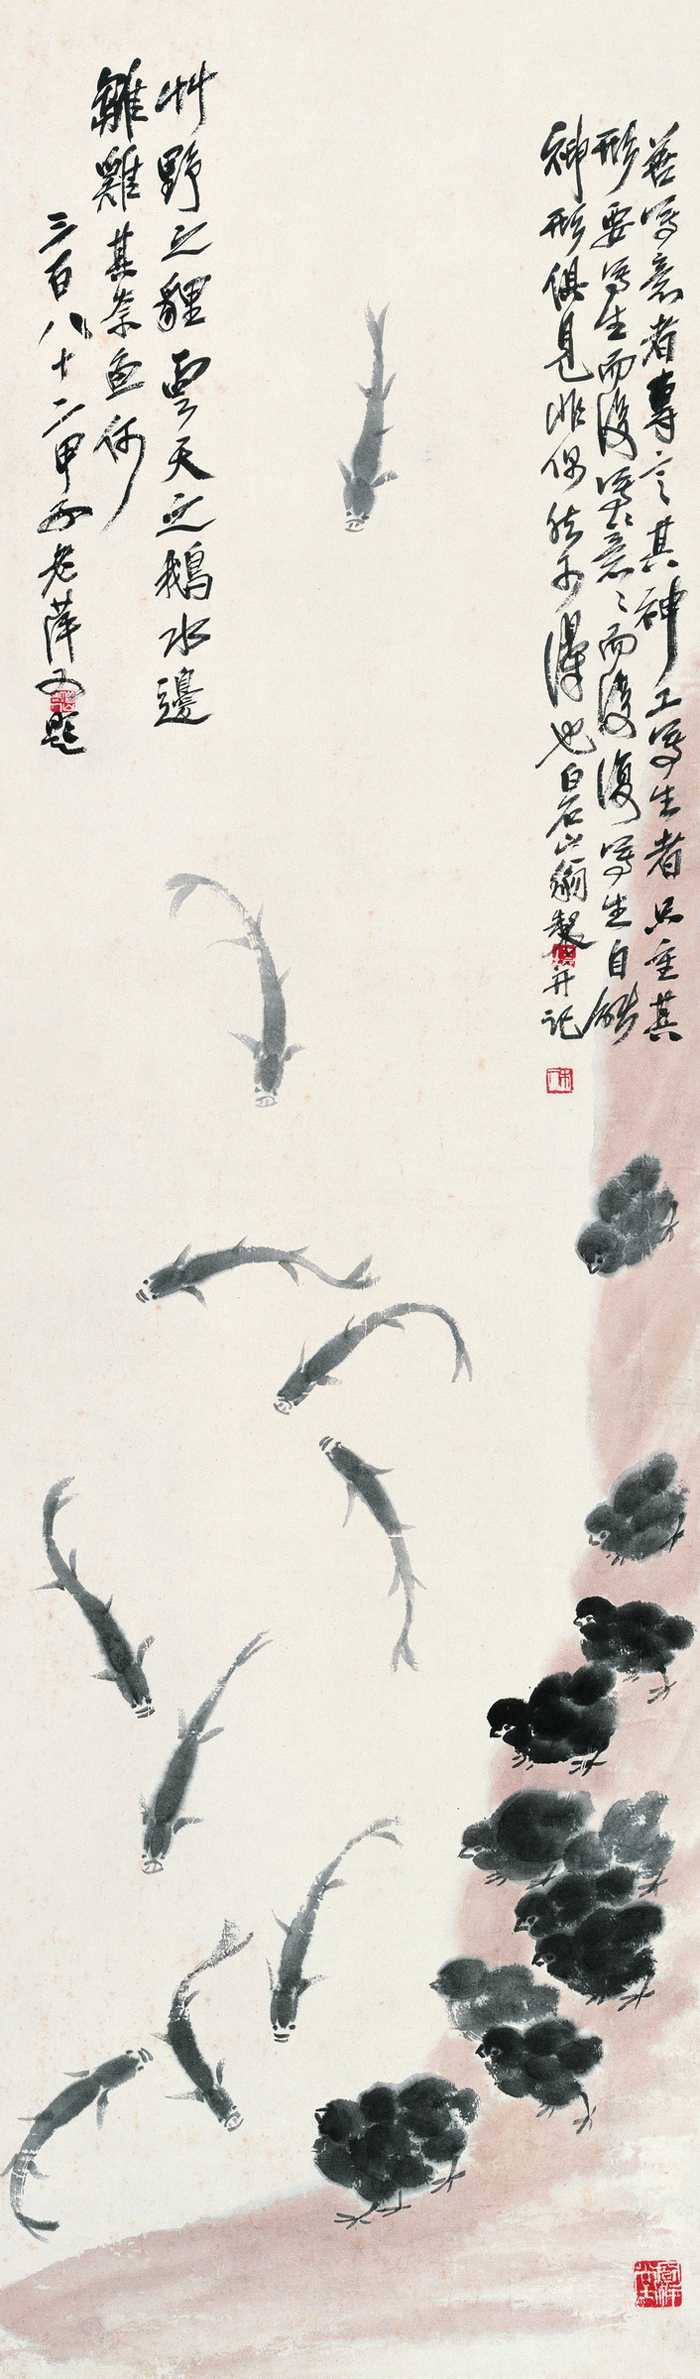 善写意者專言其神工写生者只重其
形要写生而後写意写意而後復写生自能
神形俱見非偶然可得也白石山翁製并記
艸野之貍雲天之鵝水邊
雛雞其奈魚何
三百八十二甲子老萍又題